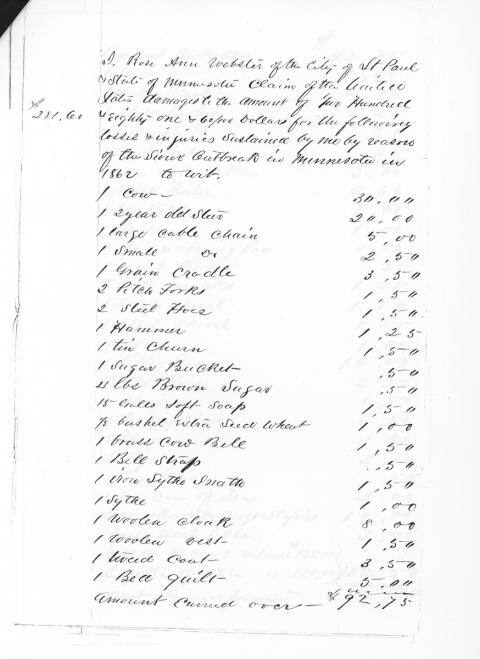 I, Rose Ann Webster of the City of St Paul
& State of Minnesota Claim of the United
States damages to the amount of Two Hundred
$281.60 & eighty one & 60/100 Dollars for the following
losses & injuries sustained by me by reason
of the Sioux Outbreak in Minnesota in
1862 to wit.
1 Cow— 30,00
1 2 year old Steer 20,00
1 large Cable Chain 5,00
1 Small Do 2,50
1 Grain Cradle 3,50
2 Pitch Forks 1,50
2 Steel Hoes 1,50
1 Hammer 1,25
1 tin Churn 1,50
1 Sugar Bucket ,50
4 lbs Brown Sugar ,50
15 Galls Soft Soap 1,50
1/2 bushel Extra Seed Wheat 1,00
1 brass Cow Bell 1,50
1 Bell Strap ,50
1 iron Sythe Snathe 1,50
1 Sythe 1,00
1 Woolen Cloak 8,00
1 Woolen vest 1,50
1 tweed Coat 3,50
1 Bed Quilt 5,00
Amount Carried over — $92,75